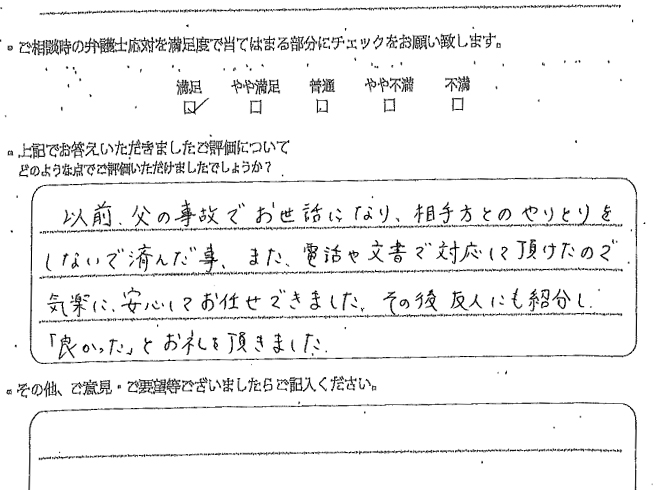 。ご相談時の弁護士応対を満足度で当てはまる部分にチェックをお願い致します。
満足 やや満足 普通 やや不満 不満
☑ □ □ □ □
。上記でお答えいただきましたご評価について
どのような点でご評価いただけましたでしょうか?
以前、父の事故でお世話になり、相手方とのやりとりを
しないで済んだ事、また、電話や文書で対応して頂けたので
気楽に、安心してお任せできました。その後友人にも紹介し、
「良かった」とお礼を頂きました。
。その他、ご意見・ご要望等ございましたらご記入ください。